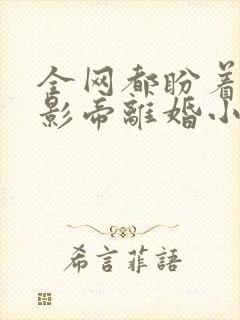 全网都盼着
影帝離婚小
希言菲語